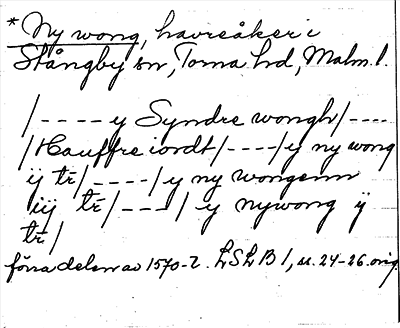 * Ny wong, havreåker i
Stångby sn, Torna hd, Malm. l.
/ - - - - y Syndre wongh / - - - -
/ Hauffre iordt / - - - - / y ny wong
ij tr̄ / - - - - / y ny wongenn
iij tr̄ / - - - / y nywong ij
tr̄ /
förra delen av 1570-t. LSLB 1, s. 24-26. orig.